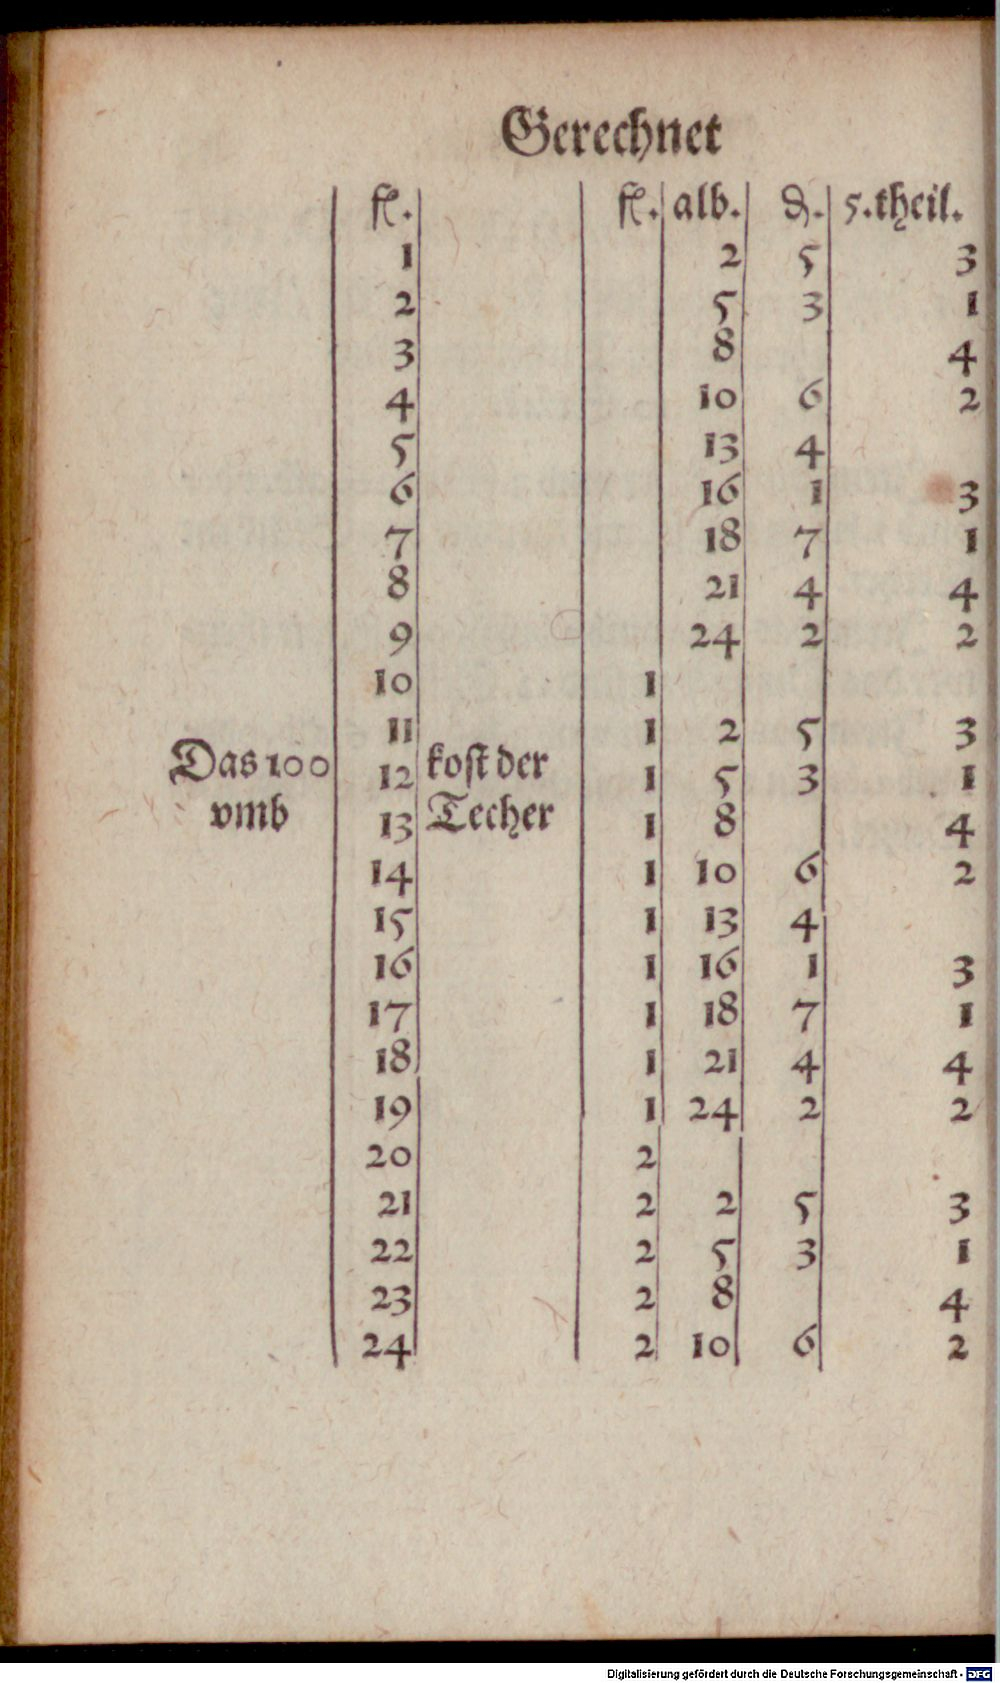 Gerechnet
fl. fl. alb. ₰. 5.theil.
1 2 5 3
2 5 3 1
3 8 4
4 10 6 2
5 13 4
6 16 1 3
7 18 7 1
8 21 4 4
9 24 2 2
10 1
11 1 2 5 3
Das 100 12 kost der 1 5 3 1
vmb 13 Techer 1 8 4
14 1 10 6 2
15 1 13 4
16 1 16 1 3
17 1 18 7 1
18 1 21 4 4
19 1 24 2 2
20 2
21 2 2 5 3
22 2 5 3 1
23 2 8 4
24 2 10 6 2
Digitalisierung gefördert durch die Deutsche Forschungsgemeinschaft - DFG